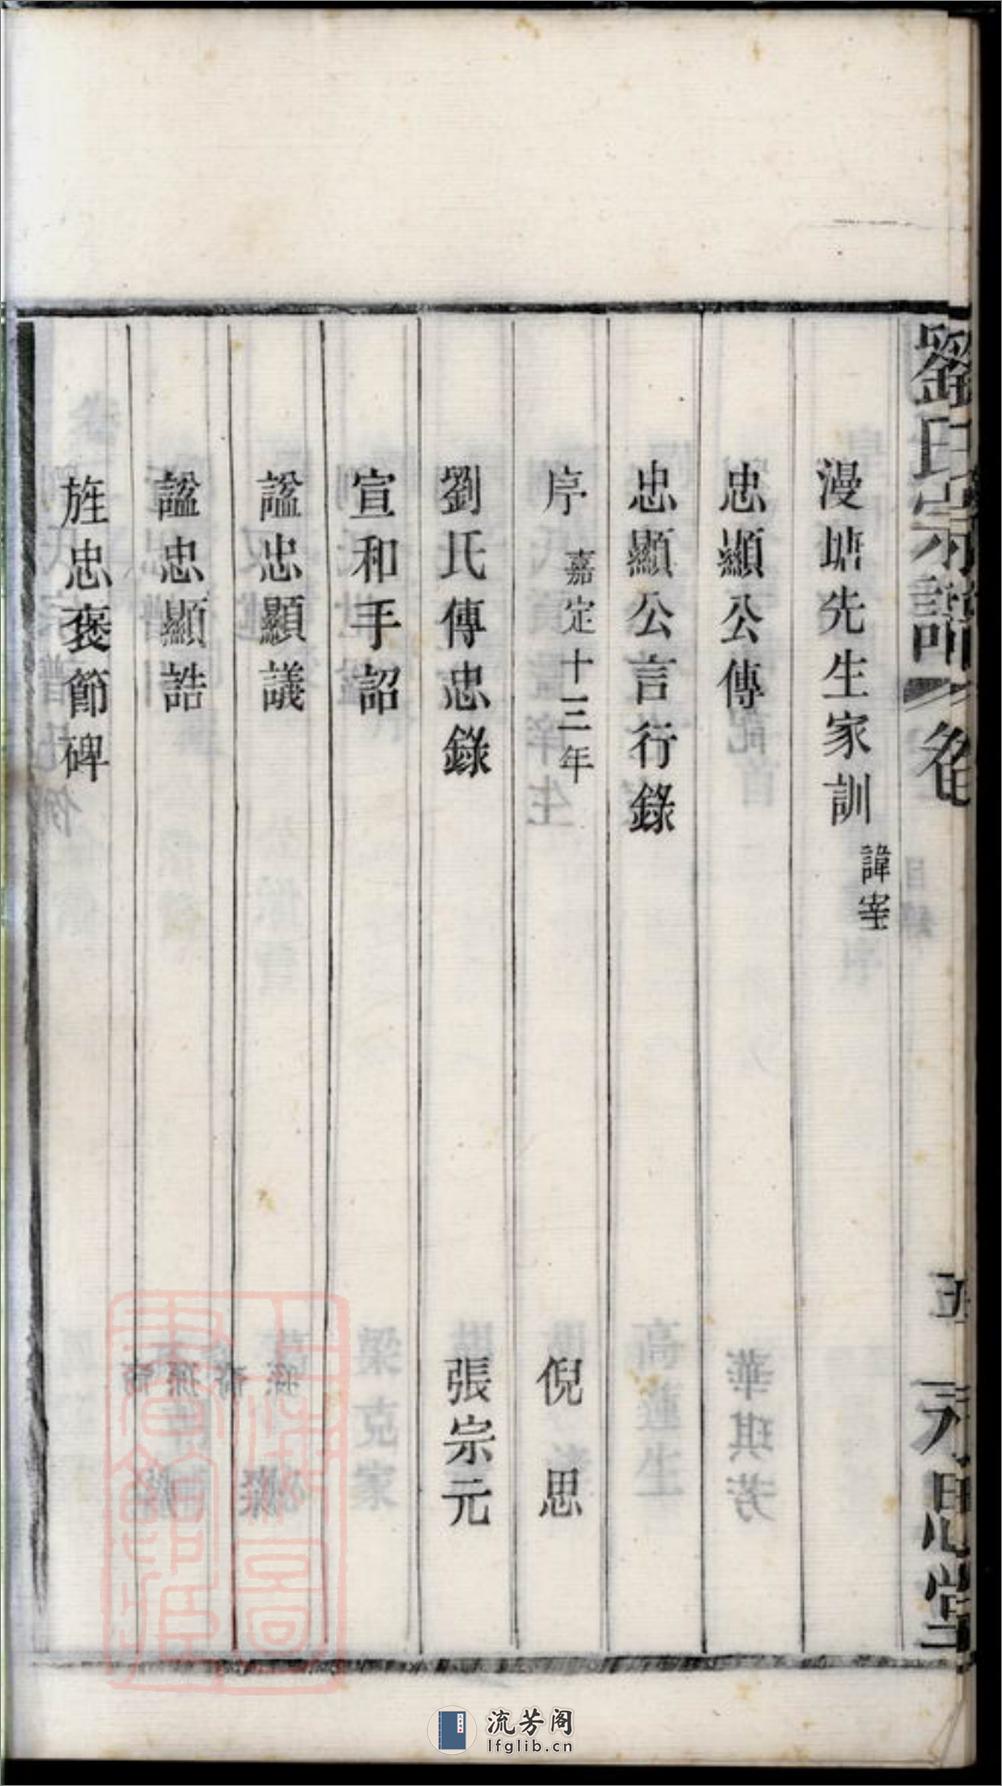 漫塘先生家訓 諱宰
忠顯公傳
忠顯公言行錄
序 嘉定十三年 倪思
劉氏傳忠錄 張宗元
宣和手詔
諡忠顯議
諡忠顯誥
旌忠褒節碑
劉氏宗譜 卷 五
流芳阁
lfglib.cn